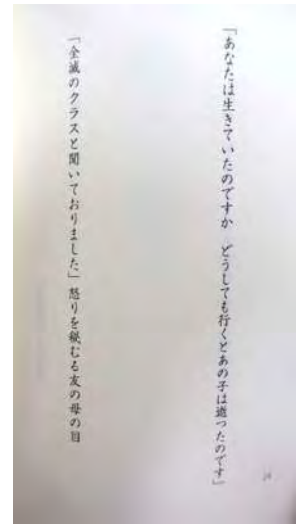 「あなたは生きていたのですか　どうしても行くとあの子は逝ったのです」
「全滅のクラスと聞いておりました」怒りを秘むる友の母の目